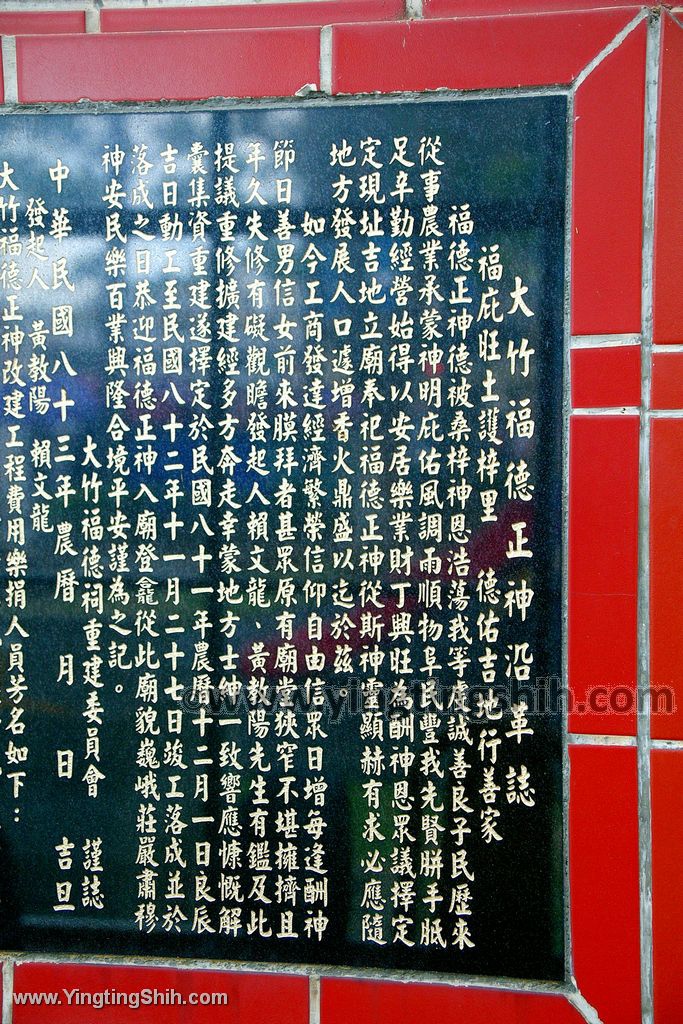 大竹福德正神沿革誌
福庇旺土護梓里　德佑吉地行善家
福德正神德被桑梓神恩浩蕩我等虔誠善良子民歷來
從事農業承蒙神明庇佑風調雨順物阜民豐我先賢胼手胝
足辛勤經營始得以安居樂業財丁興旺為酬神恩眾議擇定
定現址吉地立廟奉祀福德正神從斯神靈顯赫有求必應隨
地方發展人口遽增香火鼎盛以迄於茲。
如今工商發達經濟繁榮信仰自由信眾日增每逢酬神
節日善男信女前來膜拜者甚眾原有廟堂狹窄不堪擁擠且
年久失修有礙觀瞻發起人賴文龍、黃教陽先生有鑑及此
提議重修擴建經多方奔走幸蒙地方士紳一致響應慷慨解
囊集資重建遂擇定於民國八十一年農曆十二月一日良辰
吉日動工至民國八十二年十一月二十七日竣工落成並於
落成之日恭迎福德正神入廟登龕從此廟貌巍峨莊嚴肅穆
神安民樂百業興隆合境平安謹為之記。
大竹福德祠重建委員會　謹誌
中華民國八十三年農曆　月　日　吉旦
發起人　黃教陽　賴文龍
大竹福德正神改建工程費用樂捐人員芳名如下：
©www.yingtingshih.com
www.YingtingShih.com